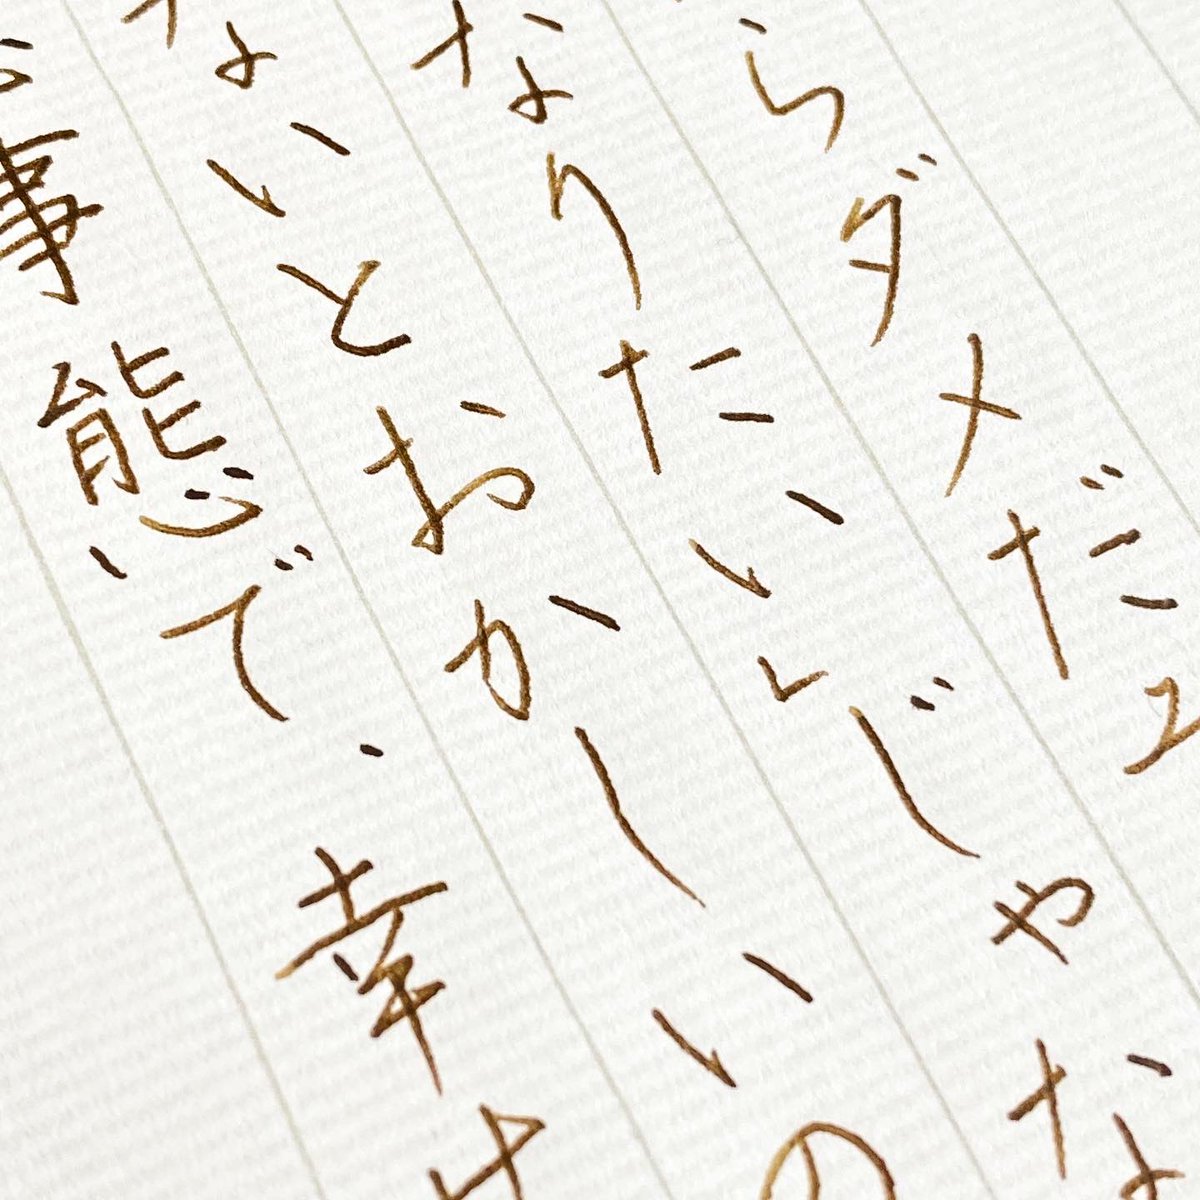 らダメだ
なりたいんじゃな
ないとおかしいの
事態で、幸せ